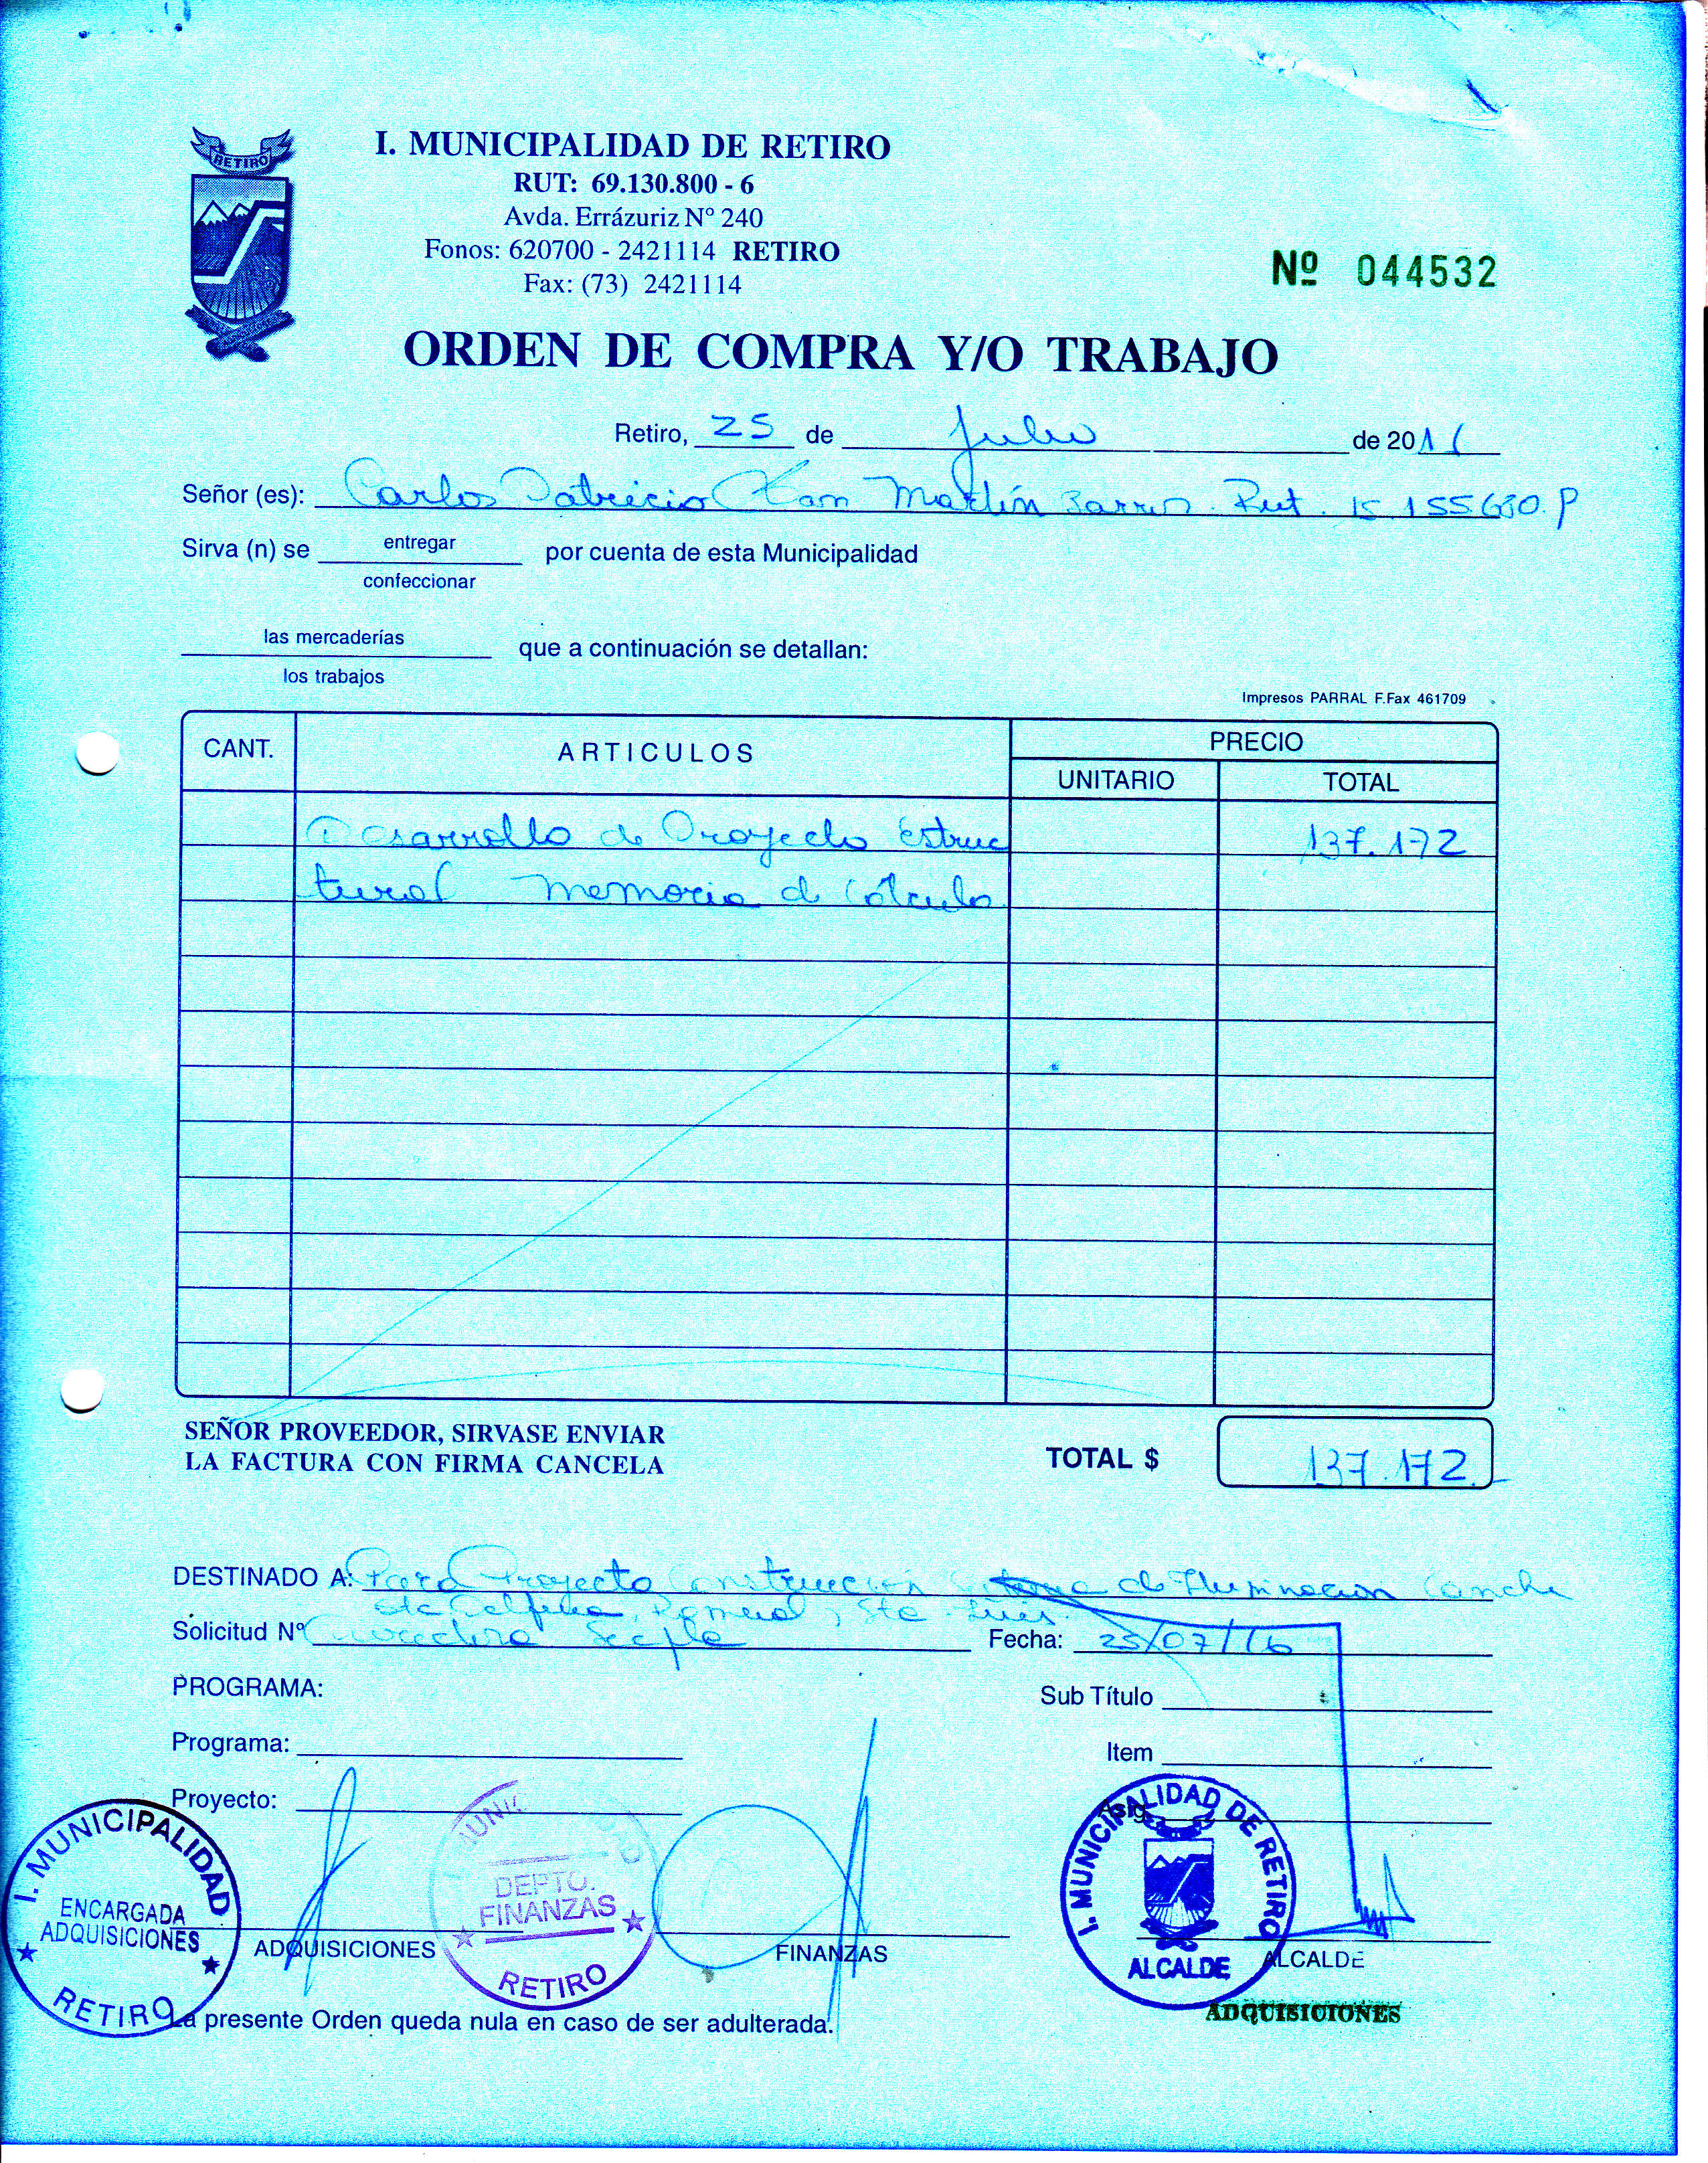 RETIRO
I. MUNICIPALIDAD DE RETIRO
RUT: 69.130.800 - 6
Avda. Errázuriz N° 240
Fonos: 620700 - 2421114 RETIRO
Fax: (73) 2421114
Nº 044532
ORDEN DE COMPRA Y/O TRABAJO
Retiro, 25 de Julio de 2016
Señor (es): Carlos Patricio San Martín Rut. 15.155.630.
Sirva (n) se entregar por cuenta de esta Municipalidad
confeccionar
las mercaderías que a continuación se detallan:
los trabajos
Impresos PARRAL F.Fax 461709
CANT. ARTICULOS PRECIO
UNITARIO TOTAL
Desarrollo de Proyecto Estruc 137.172
tural memoria de Cálculo
SEÑOR PROVEEDOR, SIRVASE ENVIAR
LA FACTURA CON FIRMA CANCELA
TOTAL $ 137.172.-
DESTINADO A: Para Proyecto Construcción Sistema de Iluminacion Cancha
Sta Delfina, Romeral, Sta.
Solicitud N° Secpla Fecha: 25/07/16
PROGRAMA:
Sub Título
Programa:
Item
Proyecto:
Asig.
I. MUNICIPALIDAD
ENCARGADA
ADQUISICIONES
RETIRO
ADQUISICIONES
DEPTO.
FINANZAS
RETIRO
FINANZAS
I. MUNICIPALIDAD DE RETIRO
ALCALDE
ALCALDE
ADQUISICIONES
La presente Orden queda nula en caso de ser adulterada.